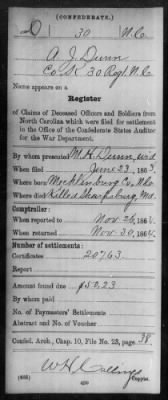 (CONFEDERATE.)
D 30 N.C.
A. J. Dunn
Co. K, 30 Regt. N.C.
Name appears on a
Register
of Claims of Deceased Officers and Soldiers from
North Carolina which were filed for settlement
in the Office of the Confederate States Auditor
for the War Department.
By whom presented M. H. Dunn, wid.
When filed June 23, 1863.
Where born Mecklenburg Co., N.C.
Where died Killed Sharpsburg, Md.
Comptroller:
When reported to Nov 26, 186
When returned Nov. 30, 186
Number of settlements:
Certificates 20763
Report
Amount found due $50,23
By whom paid
No. Paymasters' Settlements
Abstract and No. of Voucher
Confed. Arch., Chap. 10, File No. 23, page 38.
Copyist.